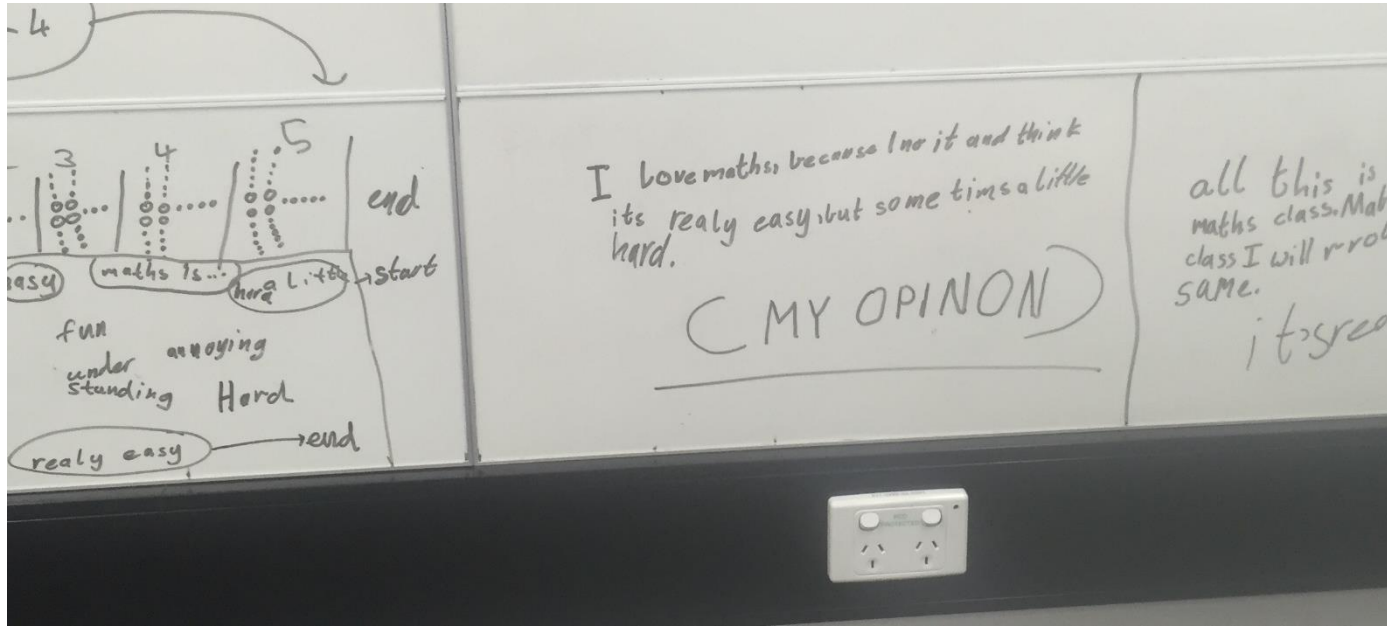 - 4
3 4 5
end
easy
maths is...
hard a Little
start
fun
under
standing
annoying
Hard
realy easy
end
I love maths, because I no it and think
its realy easy, but some tims a little
hard.
(MY OPINON)
all this is
maths class. Mat
class I will
same.